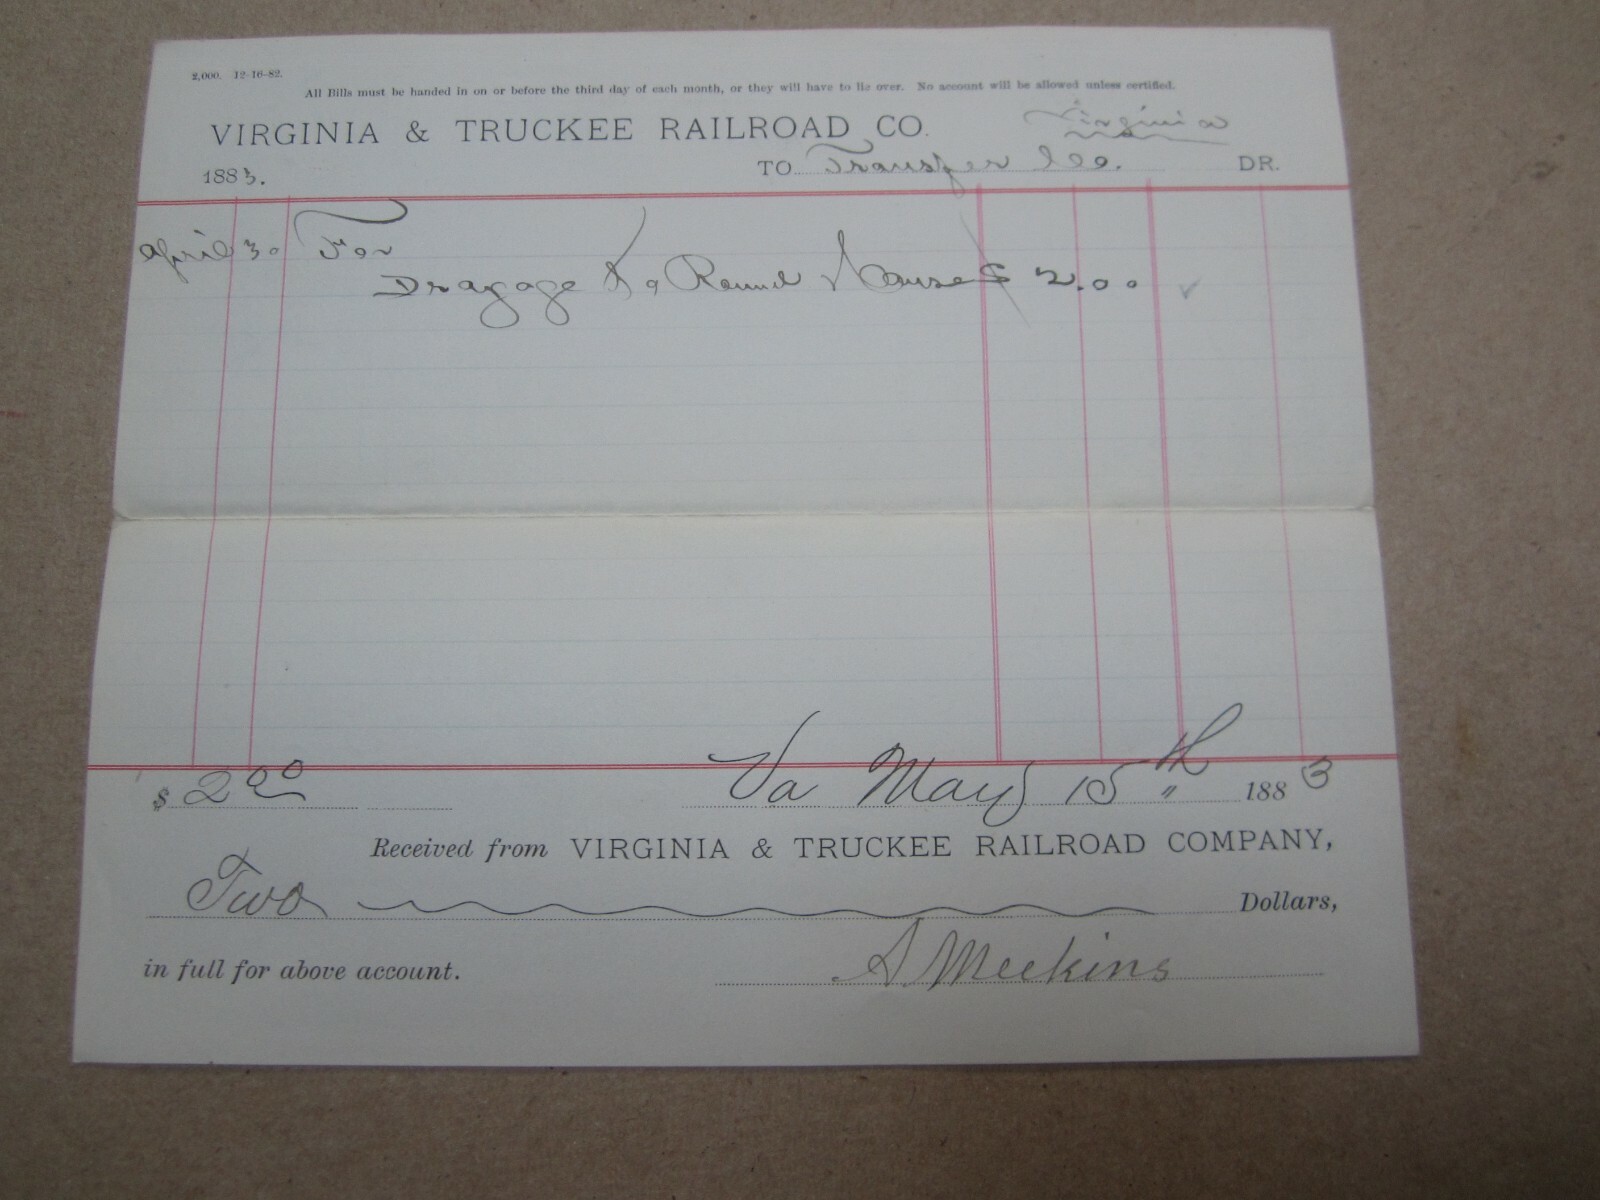 2,000. 12-16-82.
All Bills must be handed in on or before the third day of each month, or they will have to lie over. No account will be allowed unless certified.
VIRGINIA & TRUCKEE RAILROAD CO.
Virginia
1883. TO Transfer Co. DR.
April 30 For
Drayage To Round House $ 2.00
$ 2 00 Va May 15th 1883
Received from VIRGINIA & TRUCKEE RAILROAD COMPANY,
Two Dollars,
in full for above account. S. Meekins